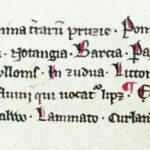 nina t̄rarū pruzie . Pom
. Notangia . Barcia . Pa
yllomſ . In zudua . Littor
Fluuij qui vocat᷑ lipz . E
alwo . Lammato . Curlan